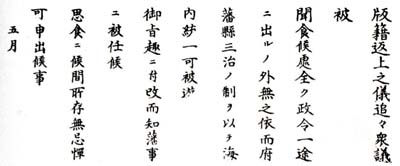 版籍返上之儀追々衆議
被
聞食候處全ク政令一途
ニ出ルノ外無之依而府
藩縣三治ノ制ヲ以テ海
内統一可被遊
御旨趣ニ付改而知藩事
ニ被任候
思食ニ候間所存無忌憚
可申出候事
五月